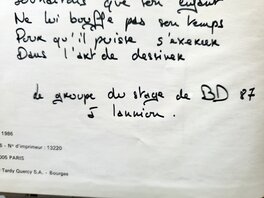 souhaitons que son enfant
Ne lui bouffe pas son temps
Pour qu'il puisse s'exercer
Dans l'art de dessiner
Le groupe du stage de BD 87
à Lannion.
1986
S - N° d'imprimeur : 13220
006 PARIS
Tardy Quercy S.A. - Bourges